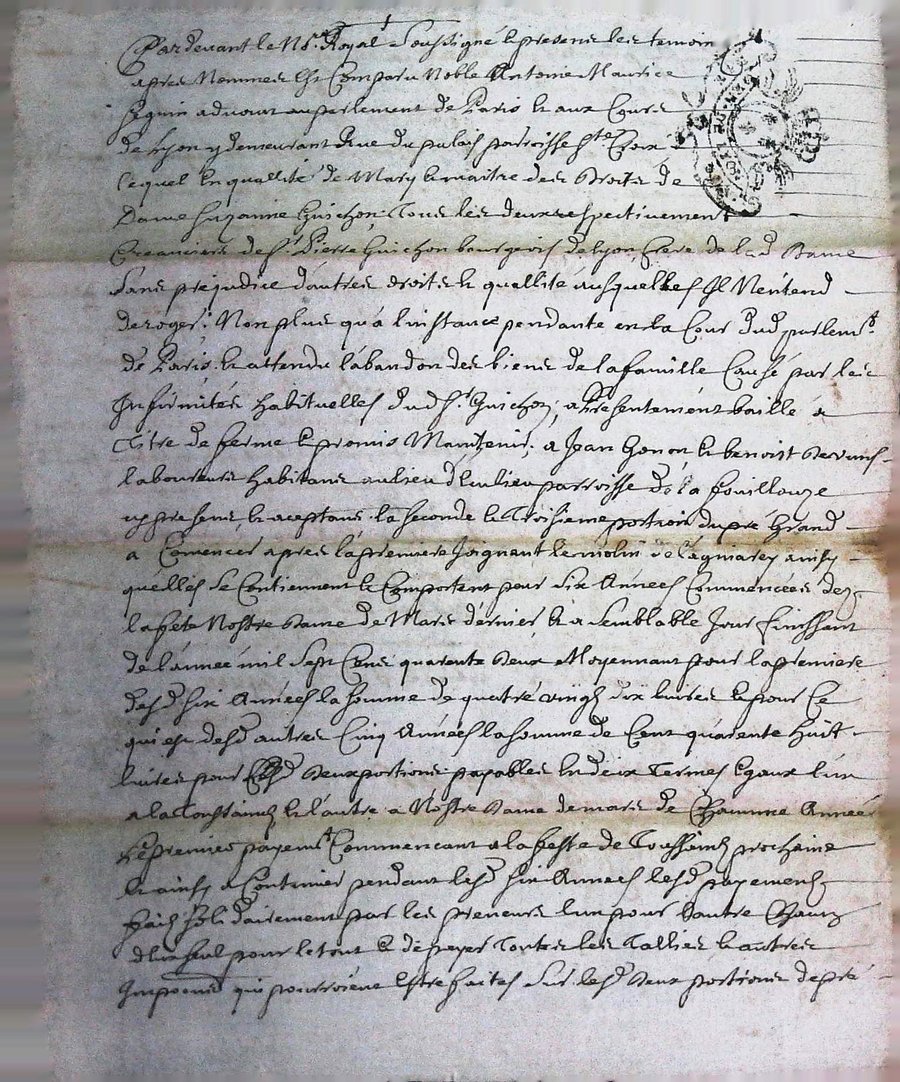 Pardevant le No.re Royal Soussigné et presens les temoin
apres Nommes Est Comparu Noble Antoine Maurice
Seguin advocat au parlement de Paris et aux Cours
de Lyon y demeurant Rue du palais parroisse Ste Croix
lequel En quallité de Mary et maitre des Droits de
Dame Suzanne Guichon Tous les deux respectivement
Creanciers de Sr Pierre Guichon bourgeois de Lyon, frere de lad Dame
Sans prejudice d'autres droits et quallité ausquelles Il N'entend
deroger. Non plus qu'a l'instance pendante en la Cour dud parlemt
de Paris. et attendu l'abandon des biens de la famille Causé par les
Infirmités habituelles dud Sr Guichon, a Presentement baillé a
Titre de ferme et promis Maintenir, a Jean Gonon et benoist
laboureurs habitans au lieu d' parroisse de la fouillouze
cy presens, et aceptans la seconde et Troisieme portion du pré Grand
a Comencer apres la premiere Joignant le molin de ainsy
quelles se Contiennent et Comportent pour six Années Commencées dez
la fete Nostre Dame de Mars dernier et a Semblable Jour finissant
de l'année mil Sept Cens quarente deux Moyennant pour la premiere
desd six Années la somme de quatre vingt dix livres et pour Ce
qui est desd autres Cinq Années la somme de Cent quarente huit
livres pour Lesd deux portions payables En deux Termes Egaux l'un
a la Toussaintz et l'autre a Nostre Dame de mars de Chacunne Année
Le premier payemt Commencant a la feste de Toussaintz prochaine
et ainsy a Continuer pendant lesd six Années lesd payementz
faitz solidairement par les preneurs l'un pour l'autre Chacun
d'Eux seul pour le tout et de payer Toutes les Tallies et autres
Impositions qui pourroient Estre faites Sur lesd deux portions de pré